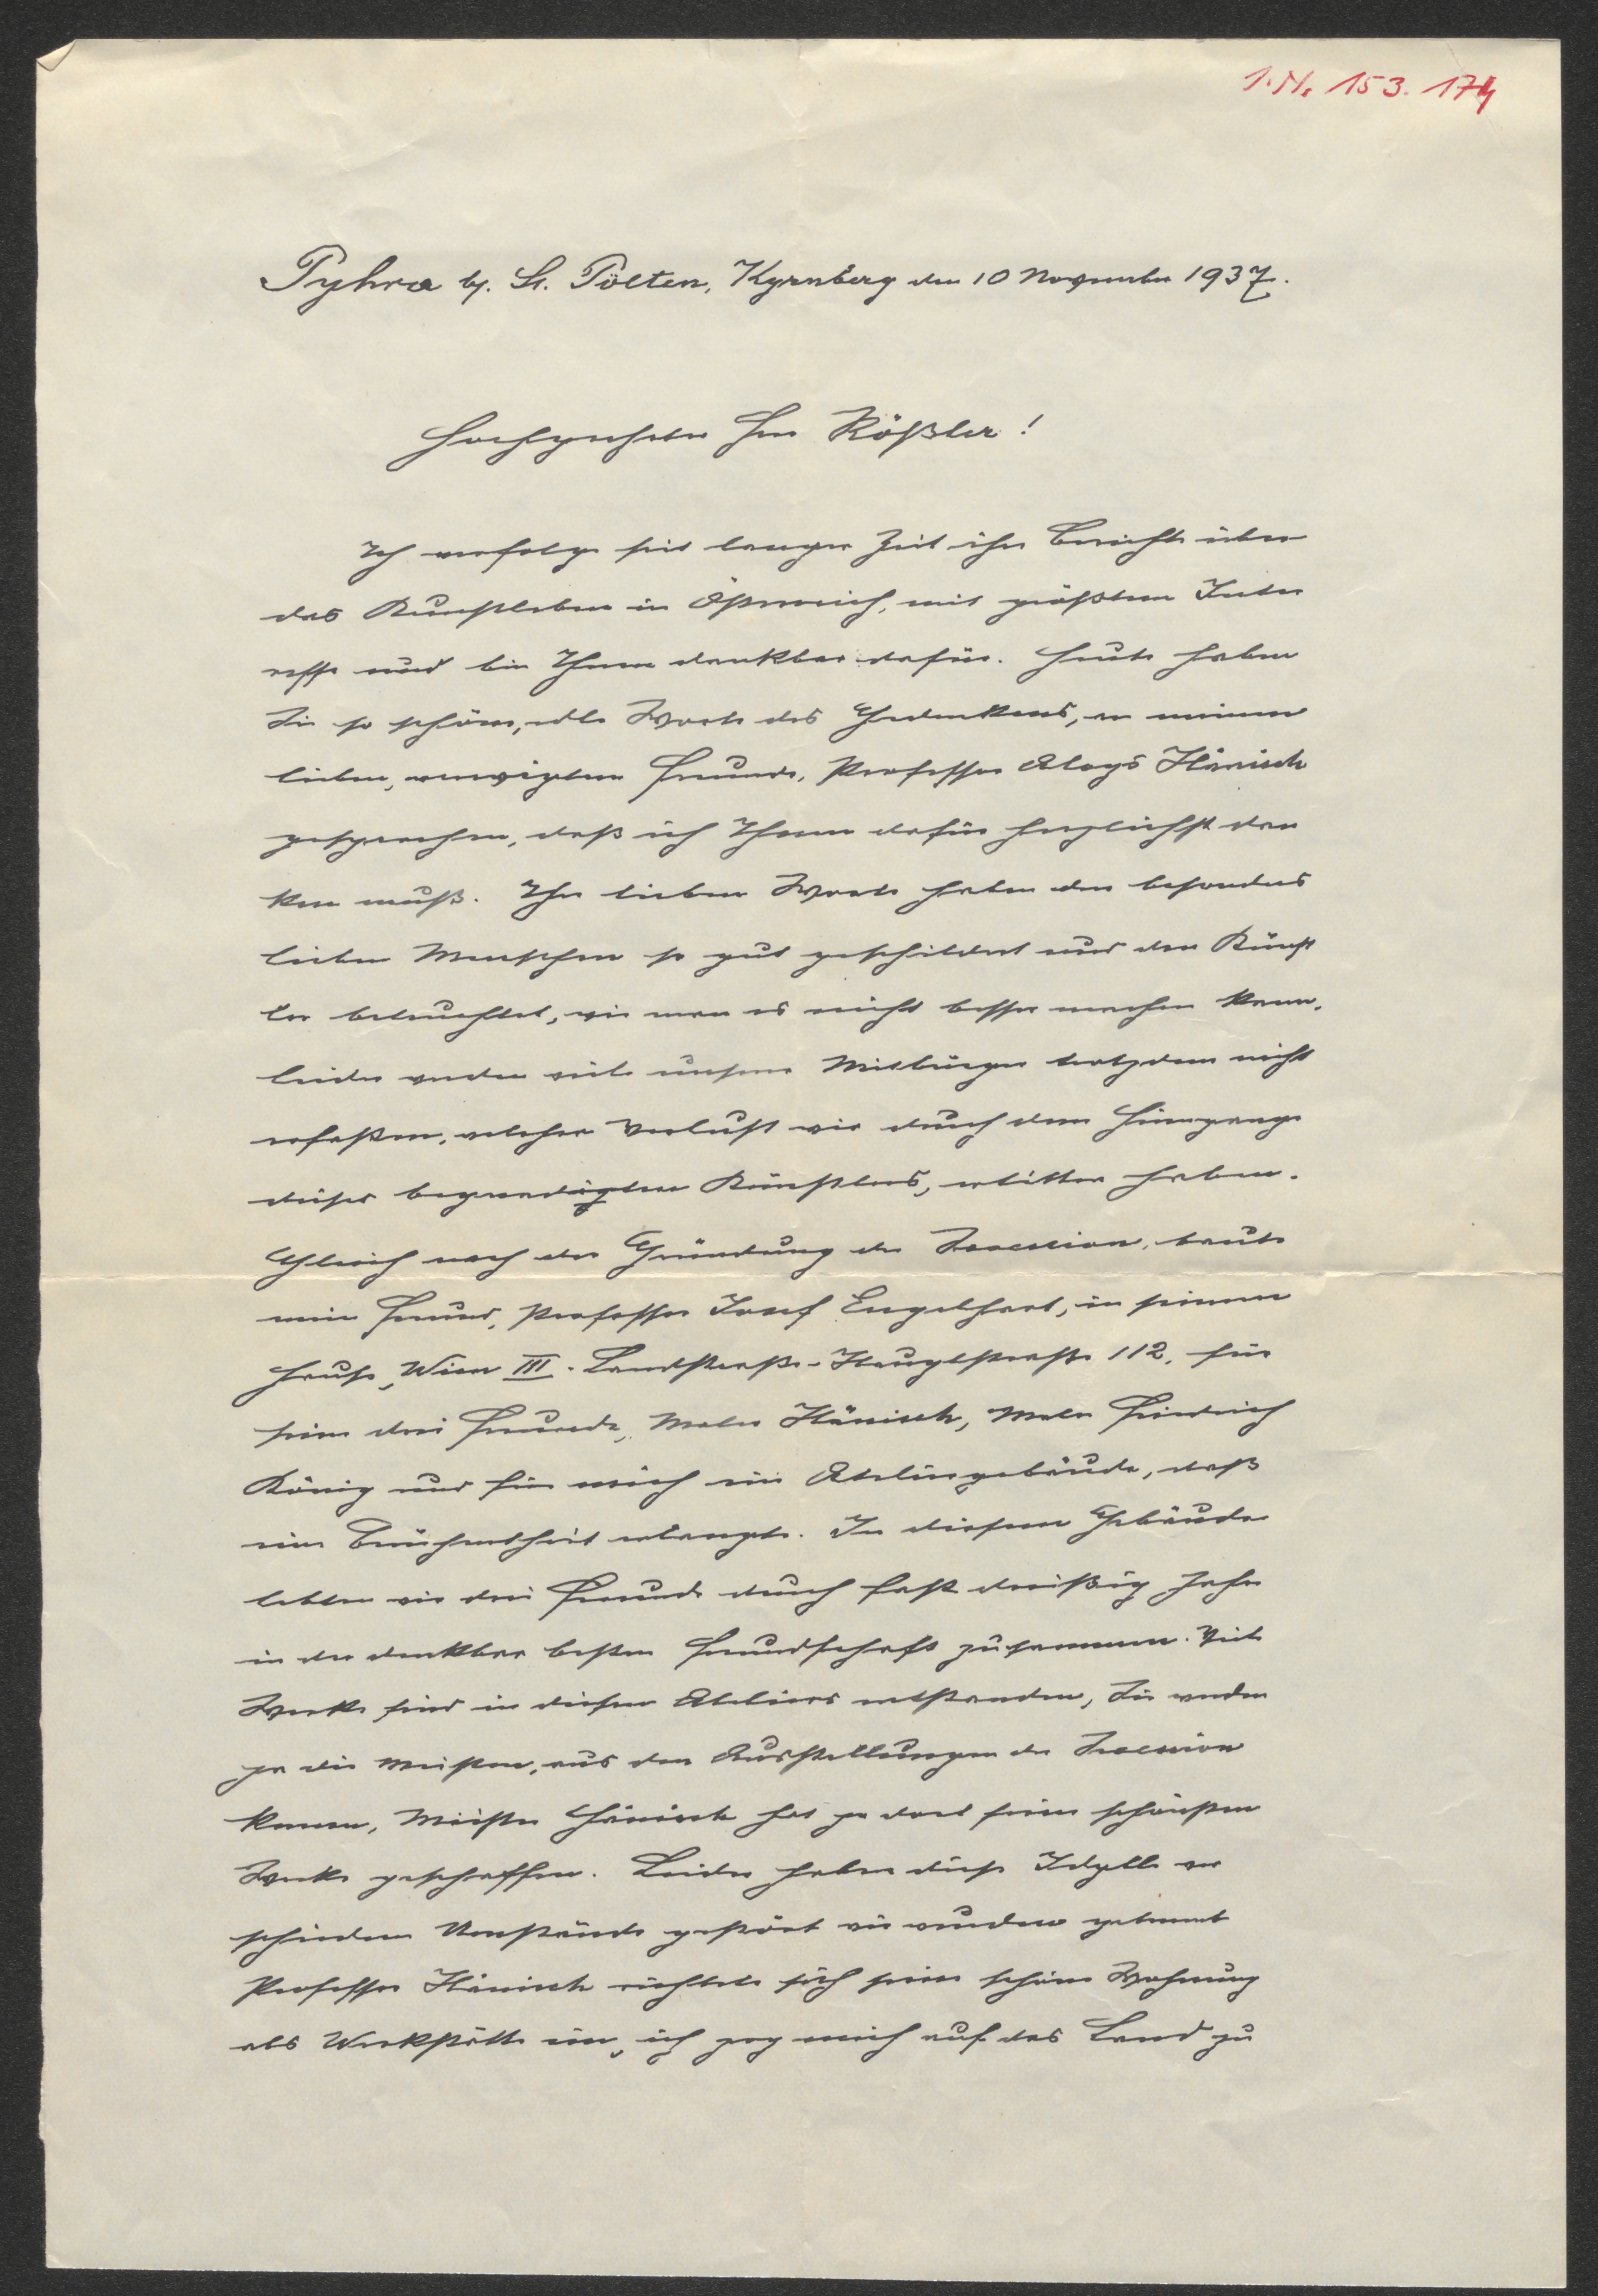 I. N. 153.174
Pyhra b. St. Pölten, Kyrnberg den 10 November 1937.
Hochgeehrter Herr Rößler!
Ich verfolge seit langer Zeit ihre Berichte über
das Kunstleben in Österreich, mit größtem Inter
esse und bin Ihnen dankbar dafür. Heute haben
Sie so schöne, edle Worte des Gedenkens, an meinen
lieben, verewigten Freund, Professor Aloys Hänisch
gesprochen, daß ich Ihnen dafür herzlichst dan
ken muß. Ihre lieben Worte haben den besonders
lieben Menschen so gut geschildert und den Künst
ler beleuchtet, wie man es nicht besser machen kann.
leider werden viele unserer Mitbürger trotzdem nicht
erfaßen, welchen Verlust wir durch dem Hinngange
dieses begnadigten Künstlers, erlitten haben.
Gleich nach der Gründung der Secession, baute
mein Freund, Professor Josef Engelhart, in seinem
Hause, Wien III. Landstraße-Hauptstraße 112, für
seine drei Freunde, Maler Hänisch, Maler Friedrich
König und für mich ein Ateliergebäude, daß
eine Berühmtheit erlangte. In diesem Gebäude
lebten wir drei Freunde durch fast dreißig Jahre
in der denkbar besten Freundschaft zusammen. Viele
Werke sind in diesen Ateliers entstanden, Sie werden
ja die meisten, aus den Ausstellungen der Secession
kennen, Meister Hänisch hat ja dort seine schönsten
Werke geschaffen. Leider haben diese Idylle ver
schiedene Umstände gestört wir wurden getrennt
Professor Hänisch richtete sich seine schöne Wohnung
als Werkstätte ein, ich zog mich auf das Land zu